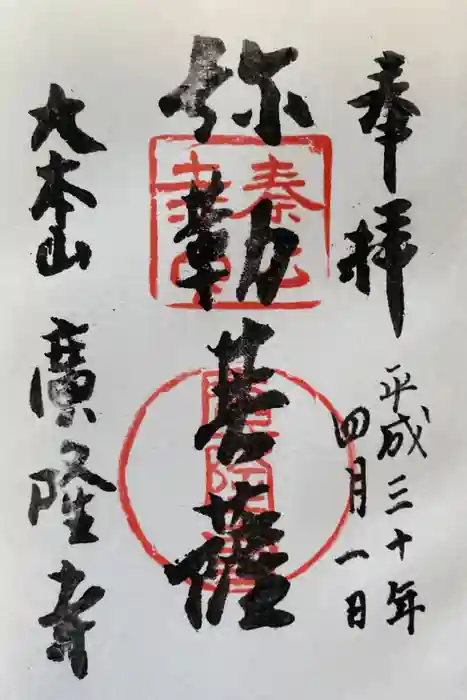 奉拝
平成三十年
四月一日
弥勒菩薩
大本山 廣隆寺
廣隆寺